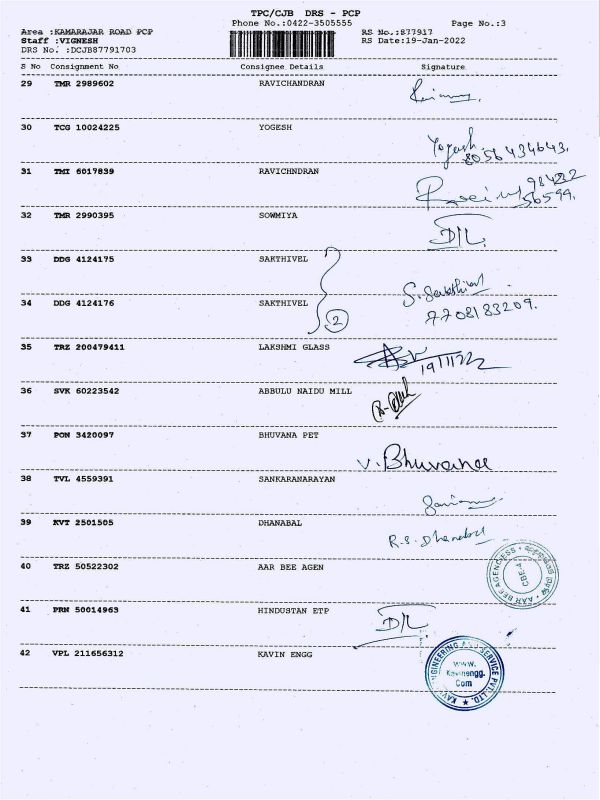 TPC/CJB DRS - PCP
Phone No.:0422-3505555 Page No.:3
Area :KAMARAJAR ROAD PCP RS No.:877917
Staff :VIGNESH RS Date:19-Jan-2022
DRS No. :DCJB87791703
S No Consignment No Consignee Details Signature
29 TMR 2989602 RAVICHANDRAN
30 TCG 10024225 YOGESH
Yogesh
8056434643.
31 TMI 6017839 RAVICHNDRAN
56599.
32 TMR 2990395 SOWMIYA
33 DDG 4124175 SAKTHIVEL
S. Sakthivel
34 DDG 4124176 SAKTHIVEL 2 7708183209.
35 TRZ 200479411 LAKSHMI GLASS
19/1/22
36 SVK 60223542 ABBULU NAIDU MILL
37 PON 3420097 BHUVANA PET
V. Bhuvana
38 TVL 4559391 SANKARANARAYAN
39 KVT 2501505 DHANABAL
R.S. Dhanabal
40 TRZ 50522302 AAR BEE AGEN
AAR BEE AGENCIESS
CBE-4
41 PRN 50014963 HINDUSTAN ETP
42 VPL 211656312 KAVIN ENGG
KAVIN ENGINEERING AND SERVICE PVT. LTD.
www.
Kavinengg.
Com